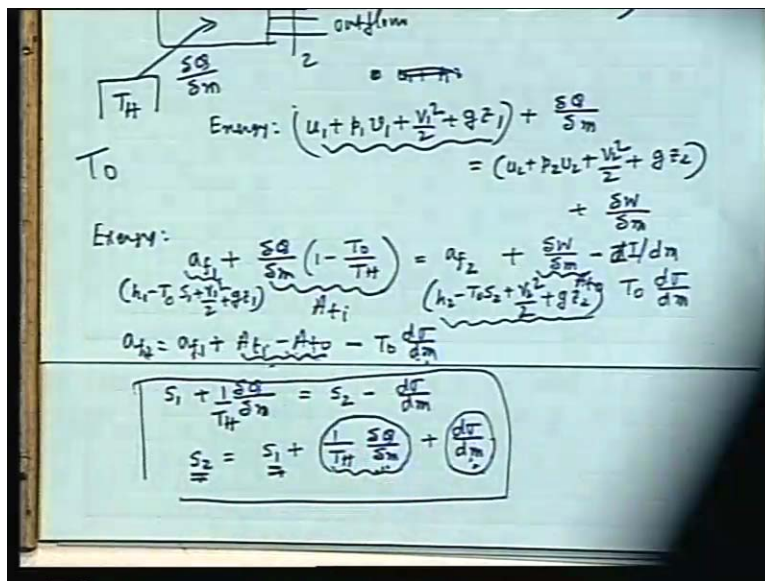 outflow
2
δQ/δm
T_H
Energy: (u₁ + p₁v₁ + V₁²/2 + gz₁) + δQ/δm
T₀
= (u₂ + p₂v₂ + V₂²/2 + gz₂)
+ δW/δm
Exergy:
a_f₁ + δQ/δm (1 - T₀/T_H) = a_f₂ + δW/δm - I/dm
(h₁ - T₀s₁ + V₁²/2 + gz₁) A_ti (h₂ - T₀s₂ + V₂²/2 + gz₂) A_to T₀ dσ/dm
a_f₂ = a_f₁ + A_ti - A_to - T₀ dσ/dm
s₁ + 1/T_H δQ/δm = s₂ - dσ/dm
s₂ = s₁ + (1/T_H δQ/δm) + (dσ/dm)